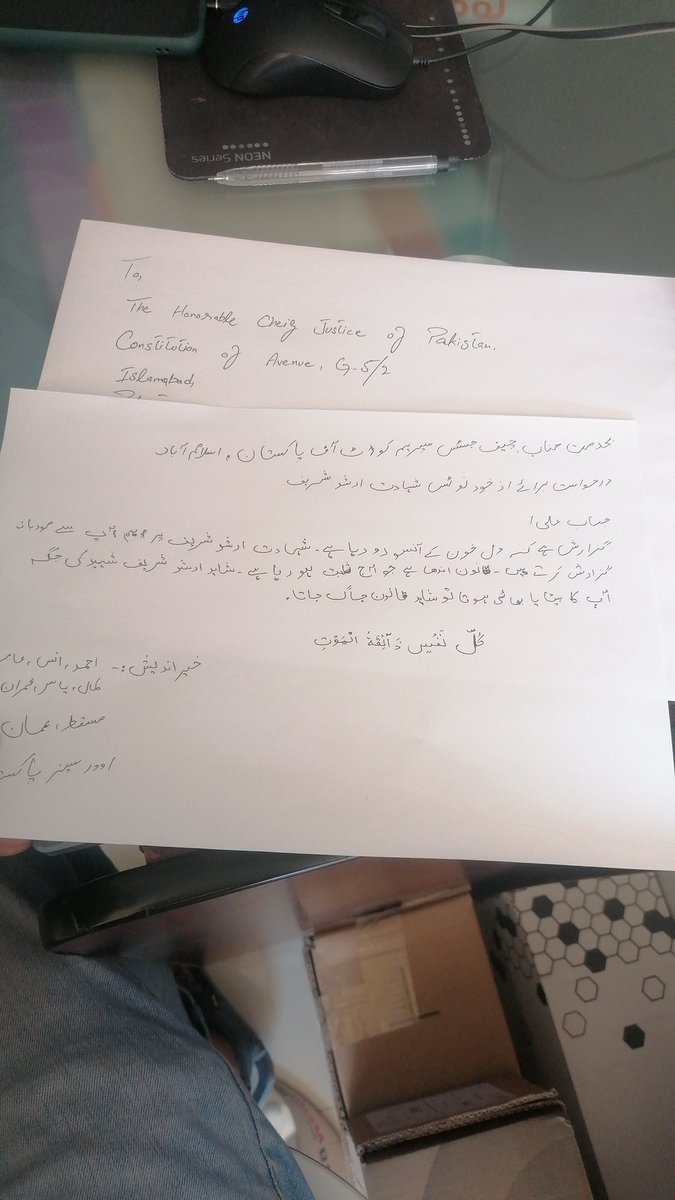 NEON Series
To,
The Honorable Cheif Justice of Pakistan,
Constitution of Avenue, G-5/2
Islamabad,
بخدمت جناب چیف جسٹس سپریم کورٹ آف پاکستان، اسلام آباد
درخواست برائے از خود نوٹس شہادت ارشد شریف
جناب عالی!
گزارش ہے کہ دل خون کے آنسو رو رہا ہے۔ شہادت ارشد شریف پر ہم آپ سے مودبانہ
گزارش کرتے ہیں۔ قانون اندھا ہے جو آج ثابت ہو رہا ہے۔ شاید ارشد شریف شہید کی جگہ
آپ کا بیٹا یا بھائی ہوتا تو شاید قانون جاگ جاتا۔
كُلُّ نَفْسٍ ذَآئِقَةُ الْمَوْتِ
خیر اندیش:- احمد، انس، عامر
یاسر، عمران
مسقط، عمان
اوورسیز پاکست